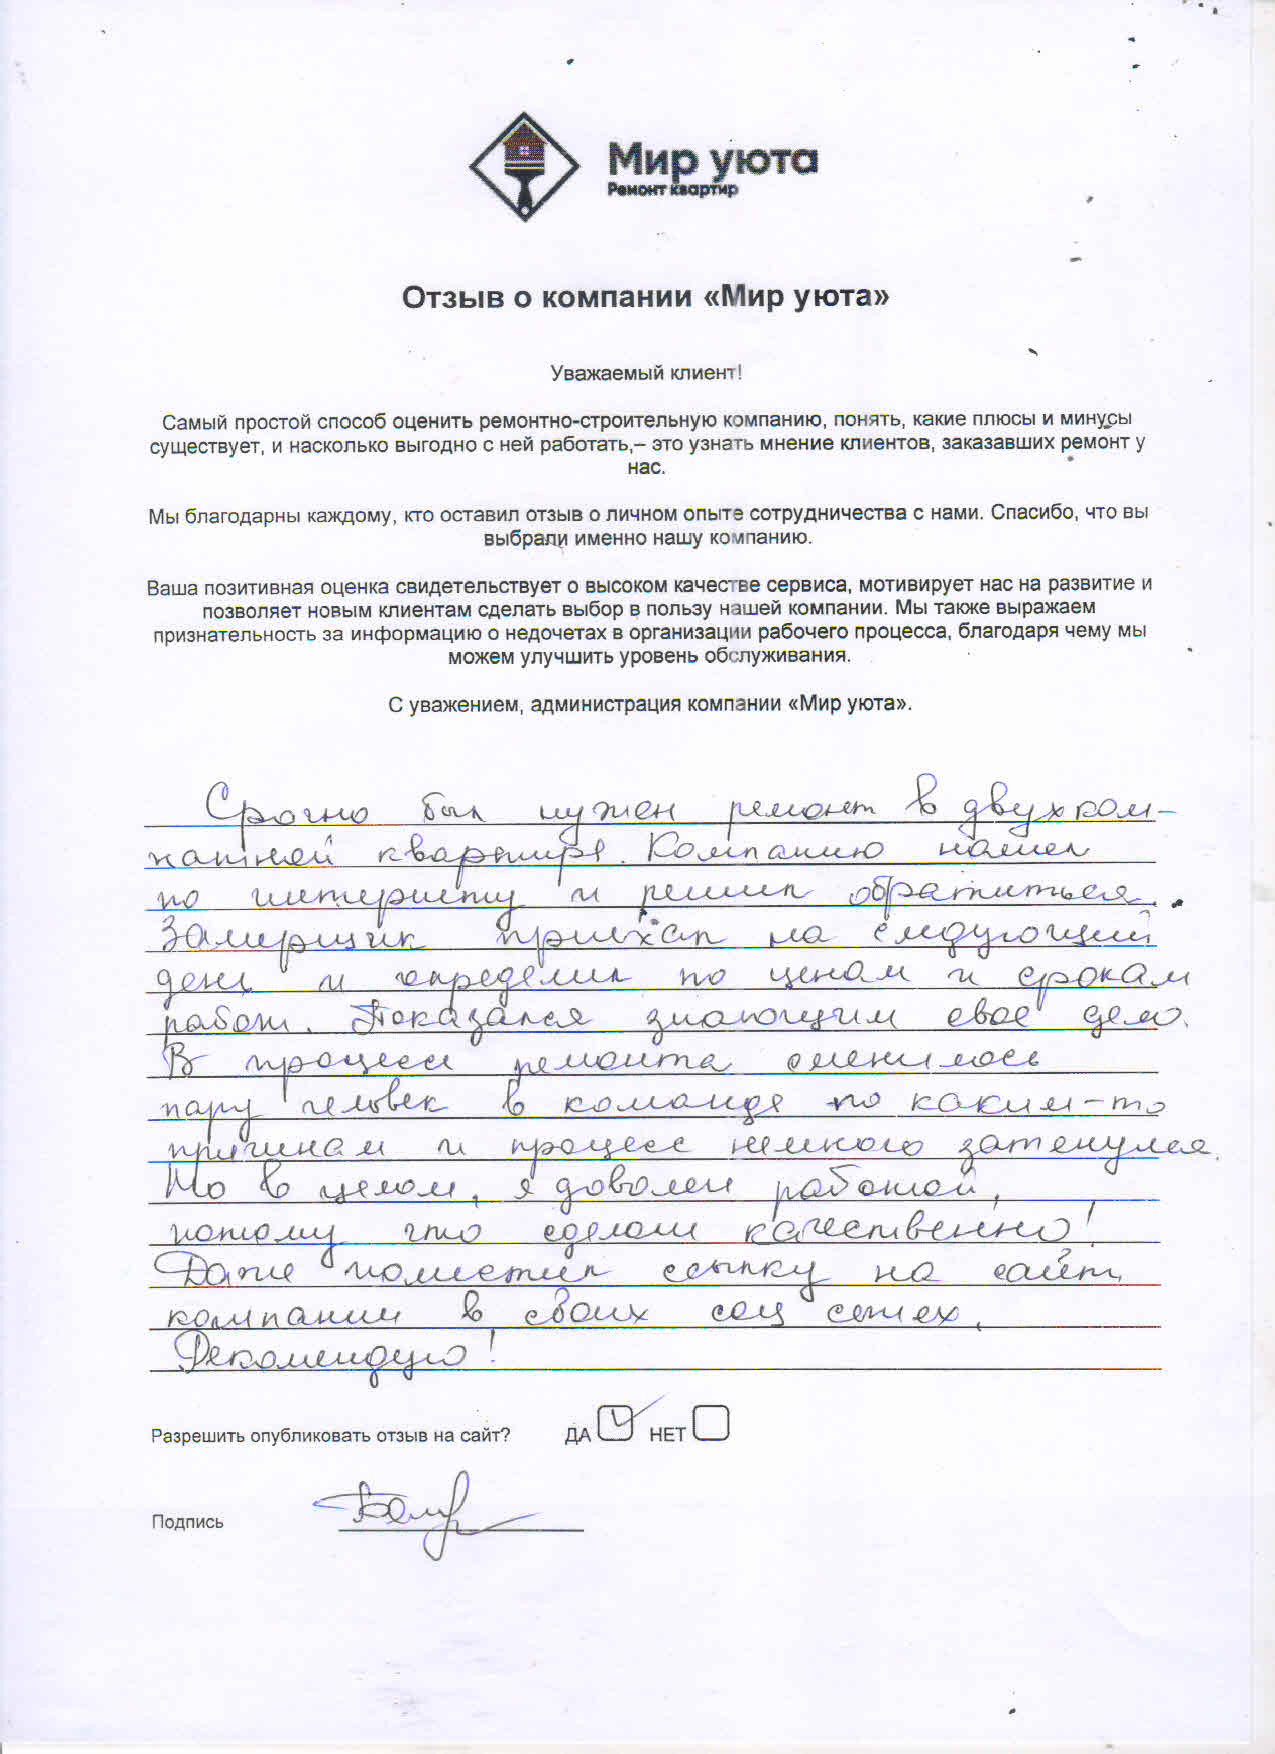 Мир уюта
Ремонт квартир
Отзыв о компании «Мир уюта»
Уважаемый клиент!
Самый простой способ оценить ремонтно-строительную компанию, понять, какие плюсы и минусы
существует, и насколько выгодно с ней работать,– это узнать мнение клиентов, заказавших ремонт у
нас.
Мы благодарны каждому, кто оставил отзыв о личном опыте сотрудничества с нами. Спасибо, что вы
выбрали именно нашу компанию.
Ваша позитивная оценка свидетельствует о высоком качестве сервиса, мотивирует нас на развитие и
позволяет новым клиентам сделать выбор в пользу нашей компании. Мы также выражаем
признательность за информацию о недочетах в организации рабочего процесса, благодаря чему мы
можем улучшить уровень обслуживания.
С уважением, администрация компании «Мир уюта».
Срочно был нужен ремонт в двухком-
натной квартире. Компанию нашел
по интернету и решил обратиться.
Замерщик приехал на следующий
день и определил по ценам и срокам
работ. Показался знающим свое дело.
В процессе ремонта сменилось
пару человек в команде по каким-то
причинам и процесс немного затенулся.
Но в целом, я доволен работой,
потому что сделали качественно!
Даже поместил ссылку на сайт
компании в своих соц сетех.
Рекомендую!
Разрешить опубликовать отзыв на сайт? ДА НЕТ
Подпись